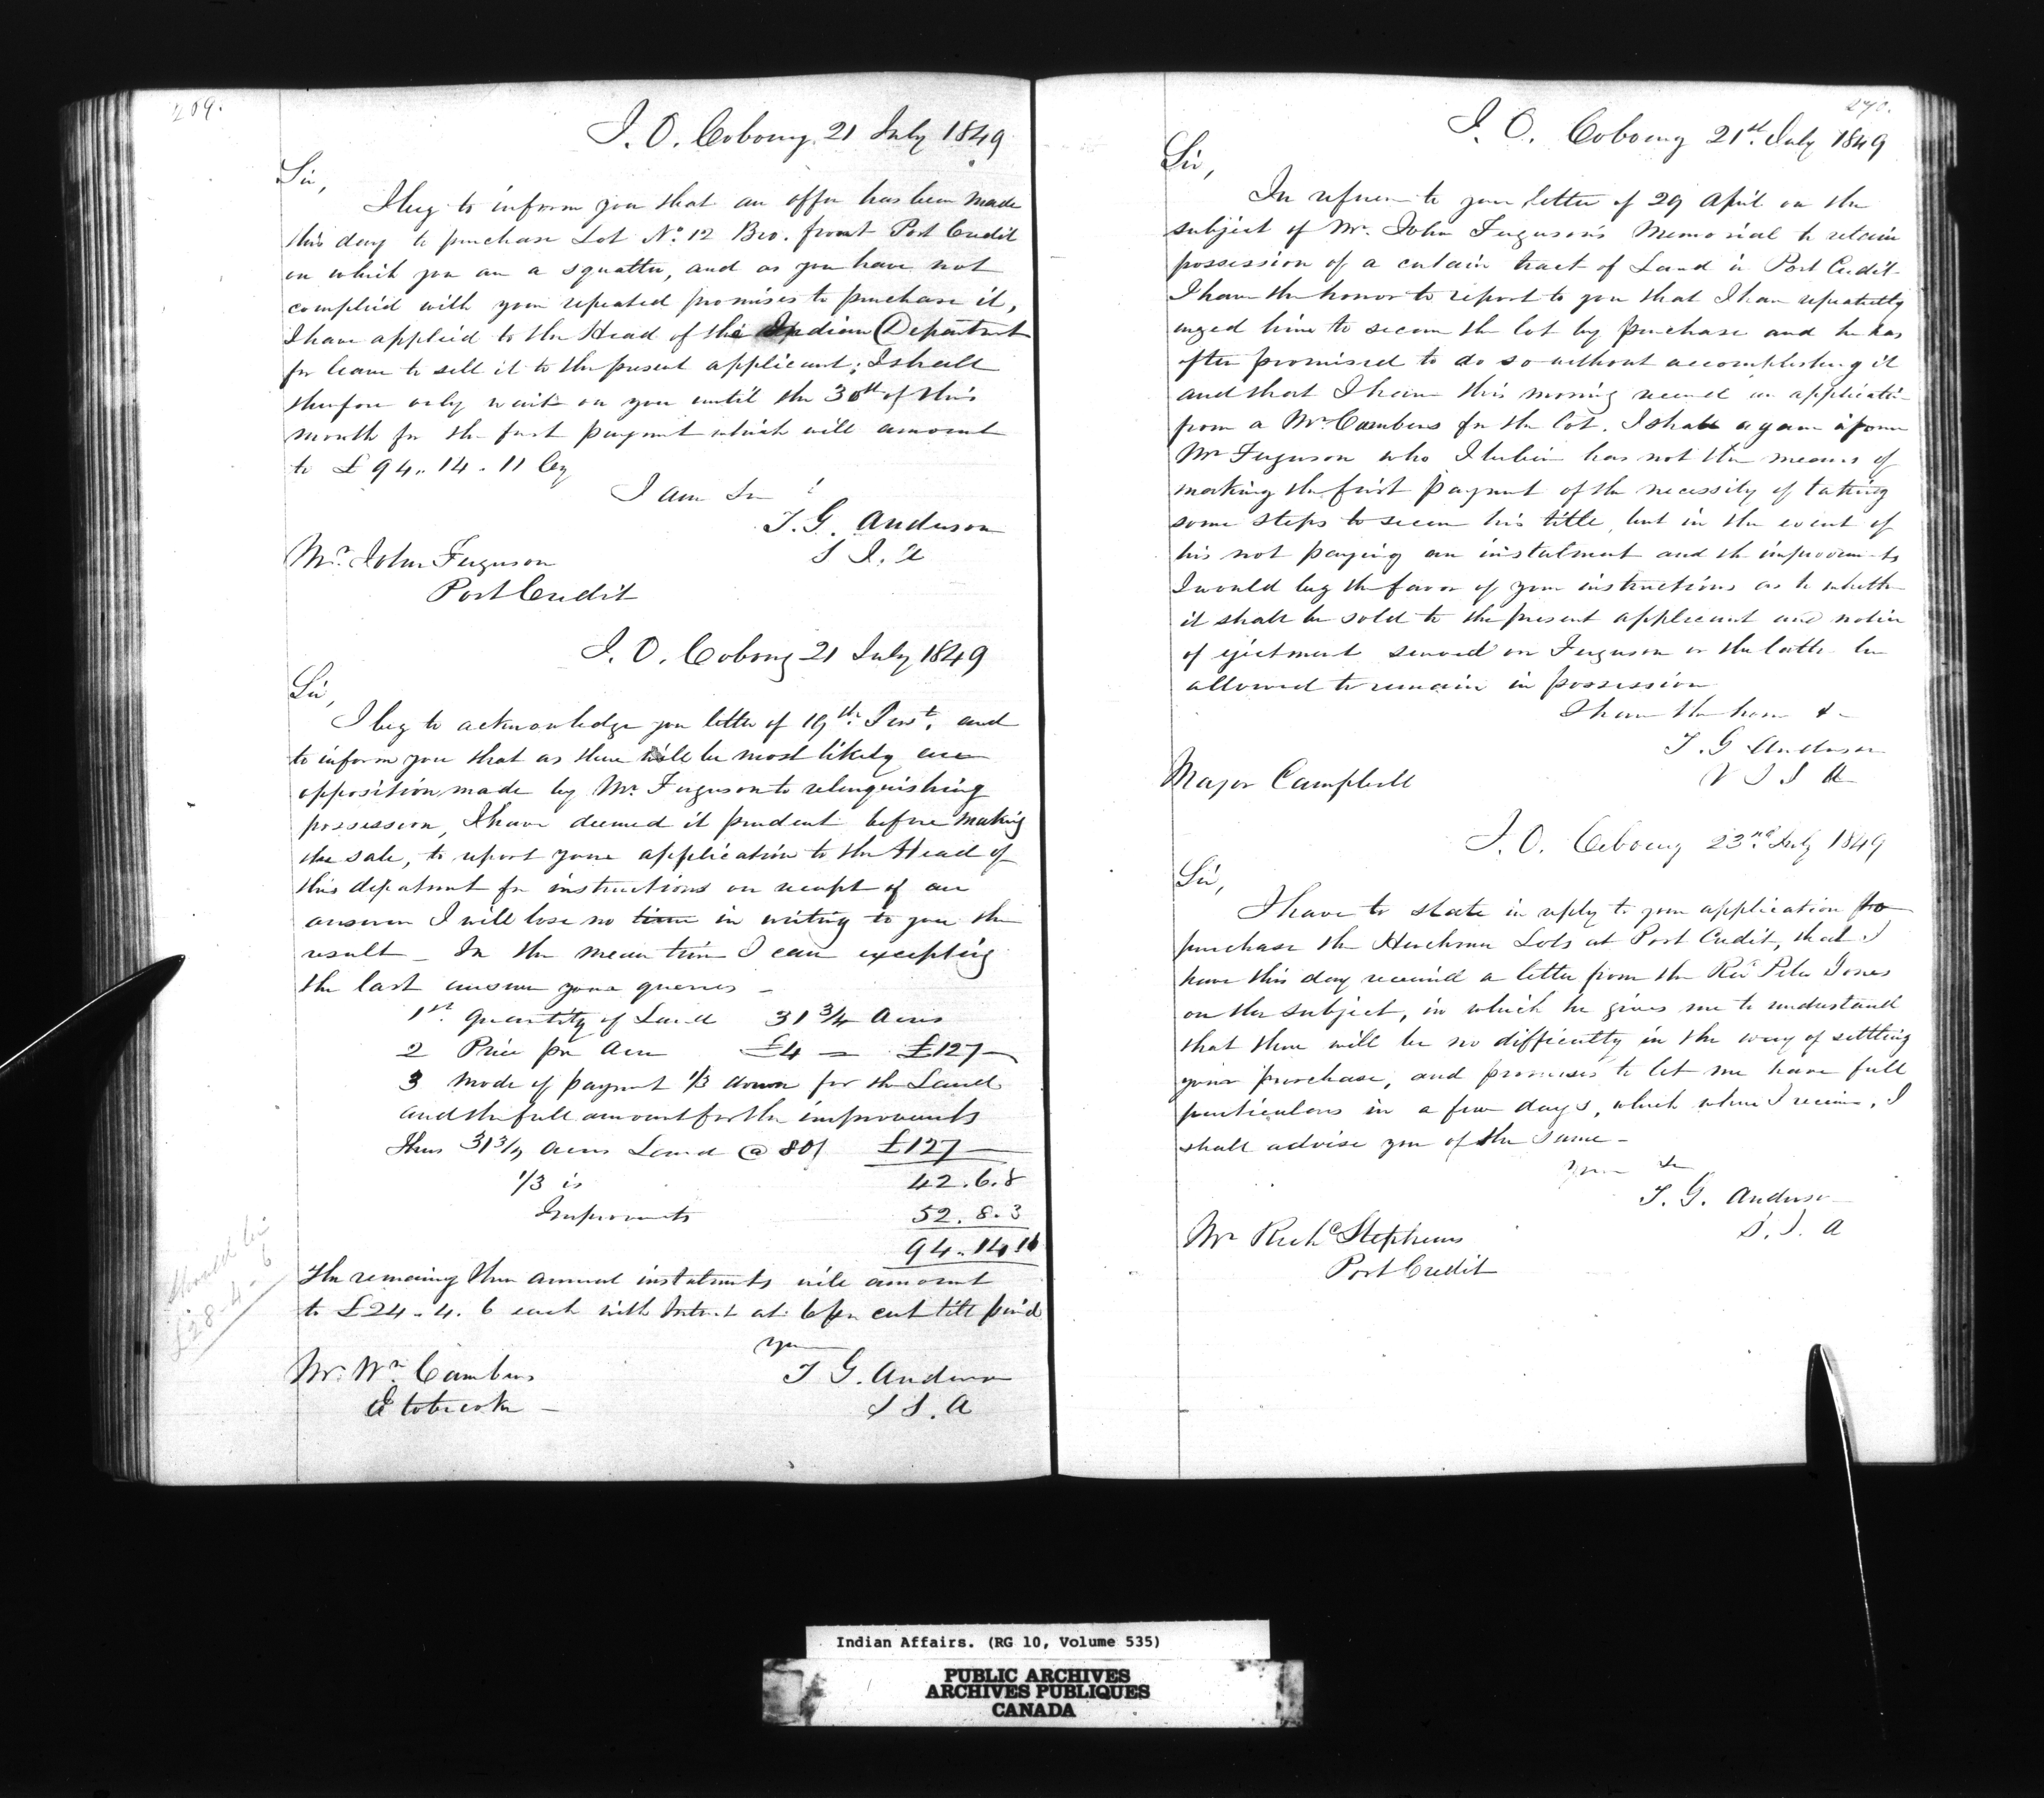 269.
I. O. Cobourg 21 July 1849
Sir,
I beg to inform you that an offer has been made
this day to purchase Lot No. 12 Bro. front Port Credit
on which you are a squatter, and as you have not
complied with your repeated promises to purchase it,
I have applied to the Head of the Indian Department
for leave to sell it to the present applicant; I shall
therefore only wait on you until the 30th of this
month for the first payment which will amount
to £94.. 14 - 11 Cy
I am Sir
T. G. Anderson
S I. A
Mr. John Ferguson
Port Credit
I. O. Cobourg 21 July 1849
Sir,
I beg to acknowledge your letter of 19th Inst. and
to inform you that as there will be most likely an
opposition made by Mr. Ferguson to relinquishing
possession, I have deemed it prudent before making
the sale, to report your application to the Head of
this department for instructions on receipt of an
answer I will lose no time in writing to you the
result - In the mean time I can excepting
the last answer your queries -
1st. Quantity of Land 31 3/4 Acres
2 Price per Acre £4 - £127 -
3 Mode of payment 1/3 down for the Land
and the full amount for the improvements
Thus 31 3/4 acres Land @ 80/ £127 -
1/3 is 42. 6. 8
Improvements 52. 8. 3
94.. 14 11
The remaining three annual instalments will amount
to £24 - 4. 6 each with Interest at 6 per cent till paid
Should be
£28-4-6
Your
T G. Anderson
S I. A
Mr. Wm. Cambers
Etobicoke -
270.
I. O. Cobourg 21st. July 1849
Sir,
In reference to your letter of 29 April on the
subject of Mr. John Ferguson's Memorial to retain
possession of a certain tract of Land in Port Credit
I have the honor to report to you that I have repeatedly
urged him to secure the lot by purchase and he has
often promised to do so without accomplishing it
and that I have this morning received an application
from a Mr. Cambers for the lot. I shall again inform
Mr Ferguson who I believe has not the means of
making the first payment of the necessity of taking
some steps to secure his title, but in the event of
his not paying an instalment and the improvements
I would beg the favor of your instructions as to whether
it shall be sold to the present applicant and notice
of ejectment served on Ferguson or the latter be
allowed to remain in possession
I have the honor &
T. G Anderson
V S I A
Major Campbell
I. O. Cobourg 23rd. July 1849
Sir,
I have to state in reply to your application to
purchase the Herchmer Lots at Port Credit, that I
have this day received a letter from the Revd Peter Jones
on the subject, in which he gives me to understand
that there will be no difficulty in the way of settling
your purchase, and promises to let me have full
particulars in a few days, which when I receive, I
shall advise you of the same -
Your Sr
T. G. Anderson
S. I. A
Mr Richd Stephens
Port Credit
Indian Affairs. (RG 10, Volume 535)
PUBLIC ARCHIVES
ARCHIVES PUBLIQUES
CANADA